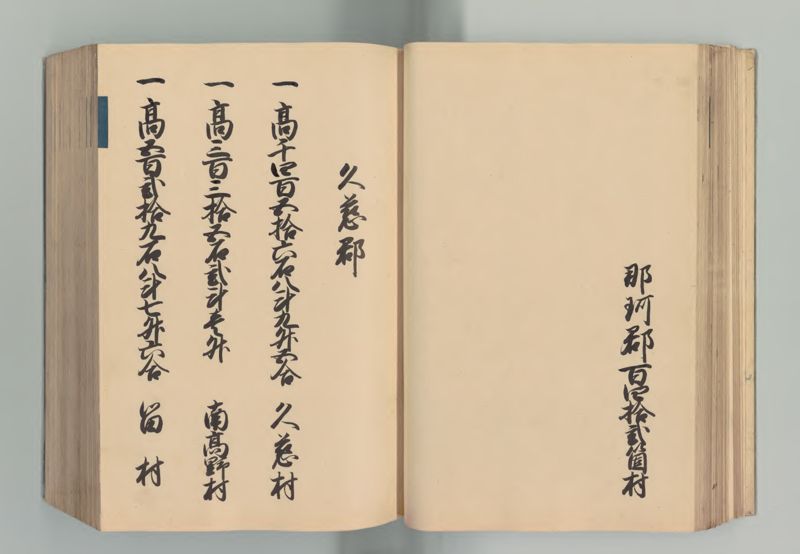 那珂郡百四拾弐箇村
久慈郡
一高千四百五拾六石八斗九升五合 久慈村
一高三百三拾五石弐斗壱升 南高野村
一高五百弐拾九石八斗七升六合 留村